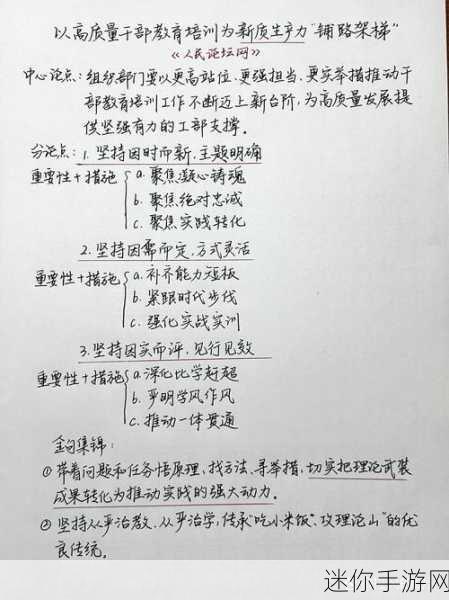 以高质量干部教育培训为新质生产力“铺路架梯”
《人民论坛网》
中心论点：组织部门要以更高站位、更强担当、更实举措推动干
部教育培训工作不断迈上新台阶，为高质量发展提
供坚强有力的工部支撑。
分论点：1. 坚持因时而新，主题明确
重要性+措施 a. 聚焦凝心铸魂
b. 聚焦绝对忠诚
c. 聚焦实践转化
2. 坚持因需而定，方式灵活
重要性+措施 a. 补齐能力短板
b. 紧跟时代步伐
c. 强化实战实训
3. 坚持因实而评，见行见效
重要性+措施 a. 深化比学赶超
b. 严明学风作风
c. 推动一体贯通
金句集锦：
① 带着问题和任务悟原理、找方法、寻举措，切实把理论武装
成果转化为推动实践的强大动力。
② 坚持从严治教、从严治学，传承“吃小米饭”、攻理论山”的优
良传统。
迷你手游网